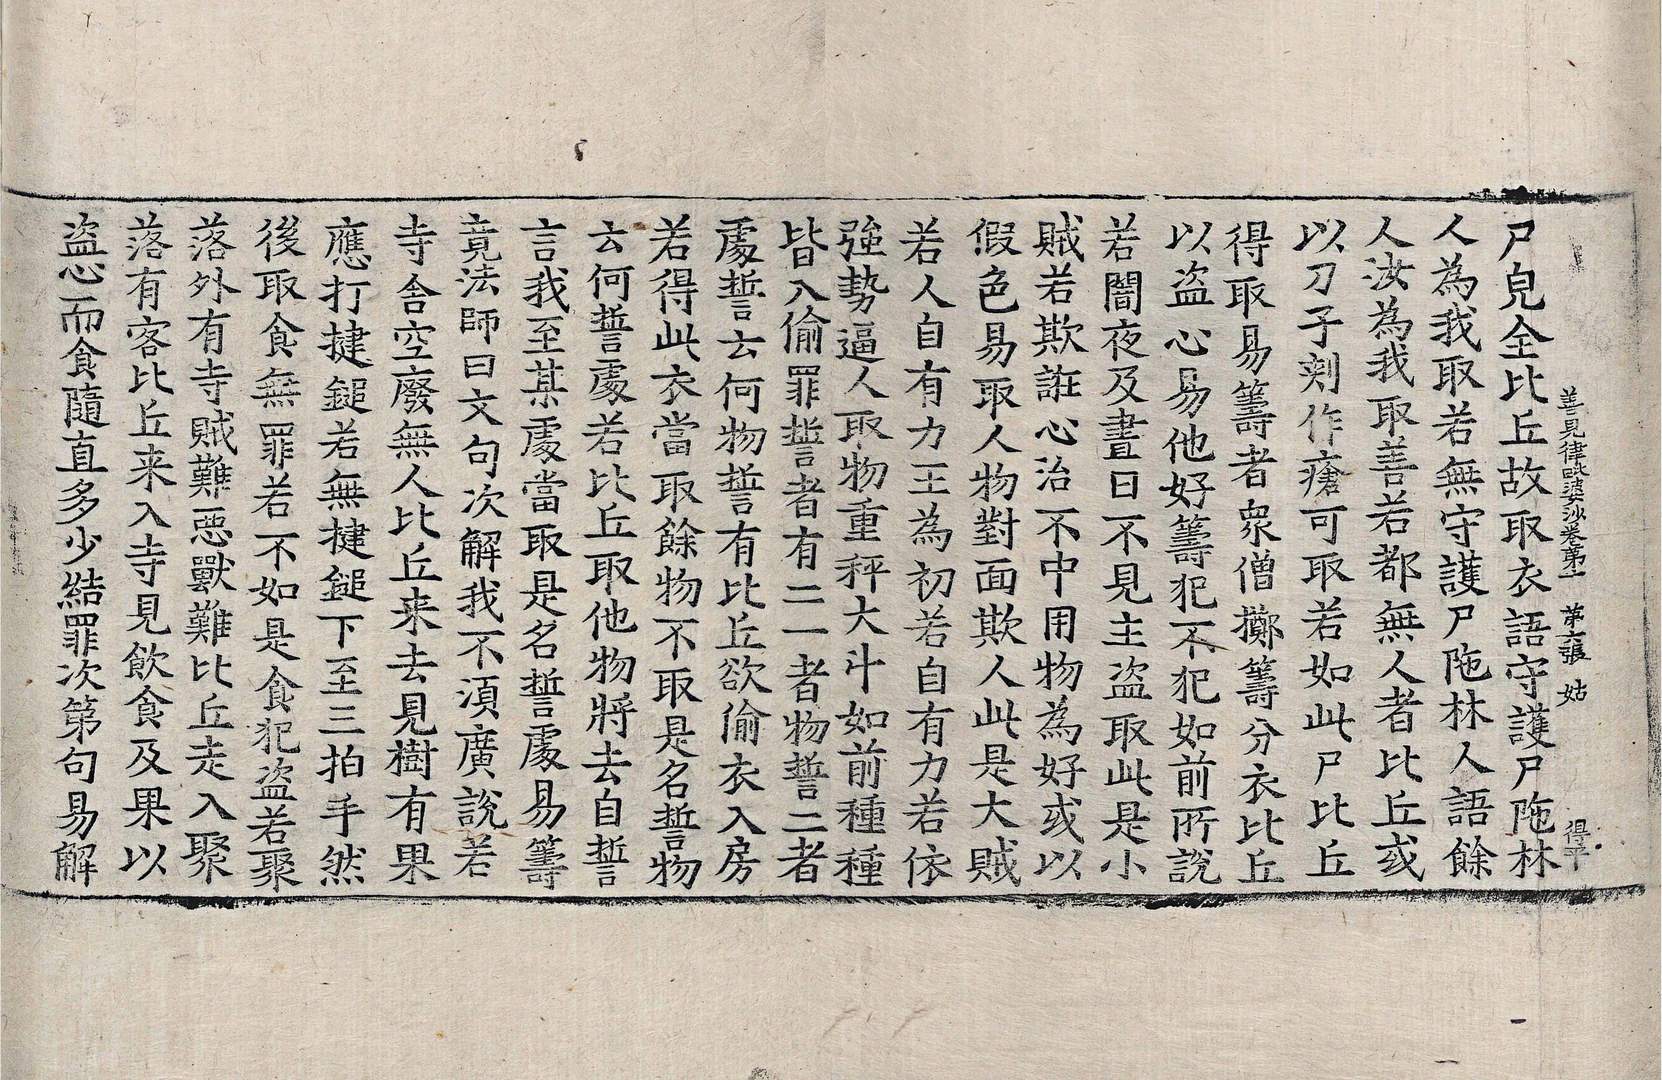 善見律毗婆沙卷第十一 第六張 姑
得平
尸皃全比丘故取衣語守護尸陁林
人為我取若無守護尸陁林人語餘
人汝為我取善若都無人者比丘或
以刀子剜作瘡可取若如此尸比丘
得取易籌者衆僧擲籌分衣比丘
以盗心易他好籌犯不犯如前所說
若闇夜及晝日不見主盗取此是小
賊若欺誑心治不中用物為好或以
假色易取人物對面欺人此是大賊
若人自有力王為初若自有力若依
強勢逼人取物重秤大斗如前種種
皆入偷罪誓者有二一者物誓二者
處誓云何物誓有比丘欲偷衣入房
若得此衣當取餘物不取是名誓物
云何誓處若比丘取他物將去自誓
言我至某處當取是名誓處易籌
竟法師曰文句次解我不湏廣說若
寺舍空廢無人比丘来去見樹有果
應打揵鎚若無揵鎚下至三拍手然
後取食無罪若不如是食犯盗若聚
落外有寺賊難惡獸難比丘走入聚
落有客比丘来入寺見飲食及果以
盗心而食隨直多少結罪次第句易解